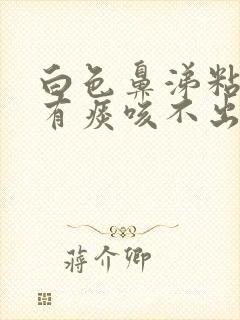 白色鼻涕粘
有痰咳不出
蒋介卿